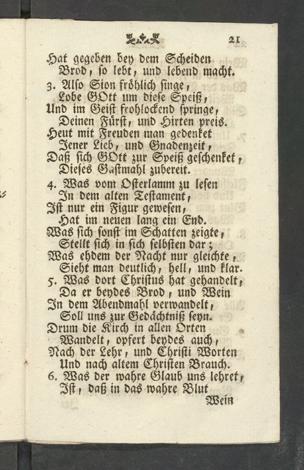 21
Hat gegeben bey dem Scheiden
Brod, so lebt, und lebend macht.
3. Also Sion fröhlich singe,
Lobe GOtt um diese Speiß,
Und im Geist frohlockend springe,
Deinen Fürst, und Hirten preis.
Heut mit Freuden man gedenket
Jener Lieb, und Gnadenzeit,
Daß sich GOtt zur Speiß geschenket,
Dieses Gastmahl zubereit.
4. Was vom Osterlamm zu lesen
In dem alten Testament,
Ist nur ein Figur gewesen,
Hat im neuen lang ein End.
Was sich sonst im Schatten zeigte,
Stellt sich in sich selbsten dar;
Was ehdem der Nacht nur gleichte,
Sieht man deutlich, hell, und klar.
5. Was dort Christus hat gehandelt,
Da er beydes Brod, und Wein
In dem Abendmahl verwandelt,
Soll uns zur Gedächtniß seyn.
Drum die Kirch in allen Orten
Wandelt, opfert beydes auch,
Nach der Lehr, und Christi Worten
Und nach altem Christen Brauch.
6. Was der wahre Glaub uns lehret,
Ist, daß in das wahre Blut
Wein